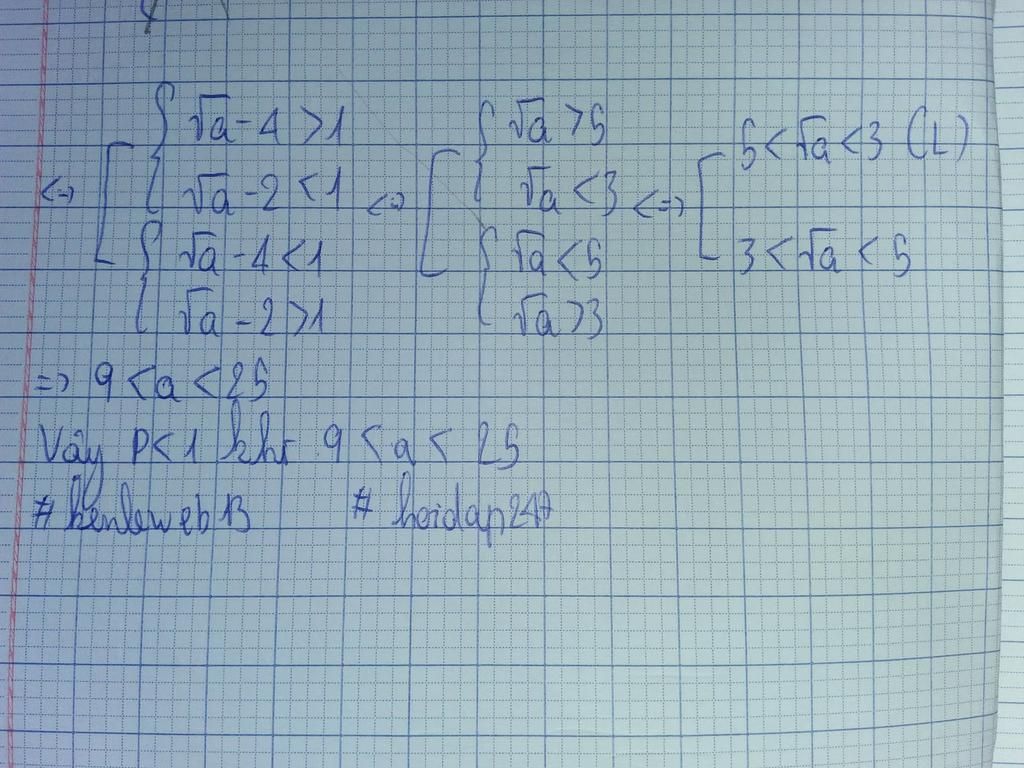 <=> [ { √a - 4 > 1
√a - 2 < 1
{ √a - 4 < 1
√a - 2 > 1
<=> [ { √a > 5
√a < 3
{ √a < 5
√a > 3
<=> [ 5 < √a < 3 (L)
3 < √a < 5
=> 9 < a < 25
Vậy P < 1 khi 9 < a < 25
# hoidap247